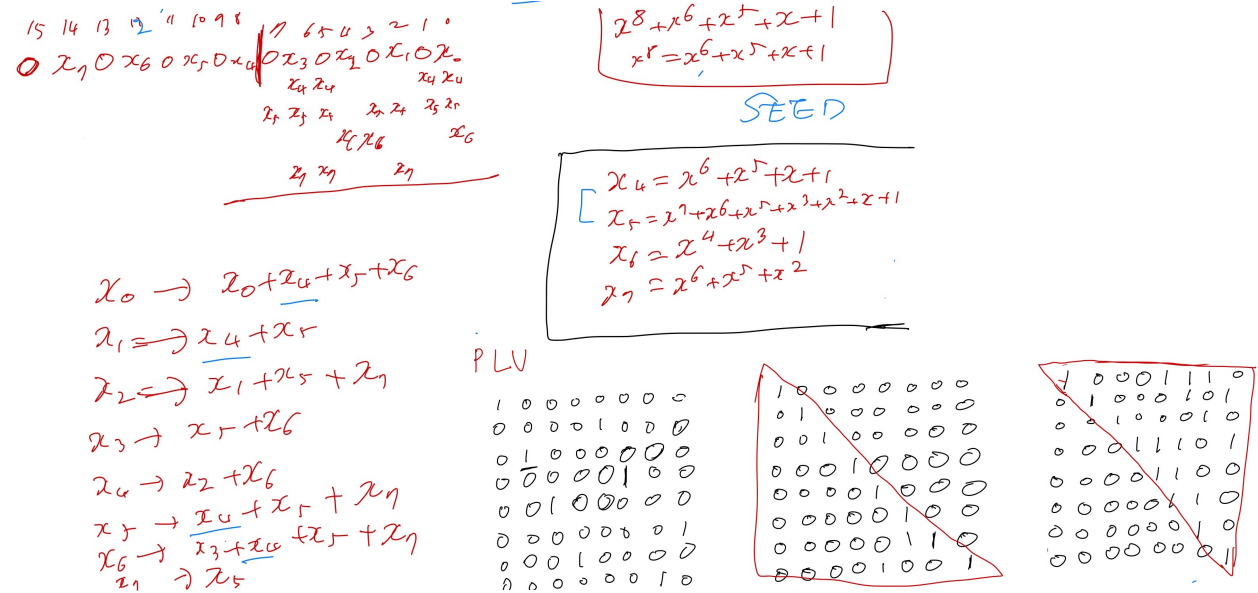 15 14 13 12 11 10 9 8 7 6 5 4 3 2 1 0
0 x₇ 0 x₆ 0 x₅ 0 x₄ 0 x₃ 0 x₂ 0 x₁ 0 x₀
x₄ x₄ x₄ x₄
x₅ x₅ x₅ x₅
x₆ x₆ x₆
x₇ x₇ x₇
x⁸+x⁶+x⁵+x+1
x⁸=x⁶+x⁵+x+1
SEED
x₄=x⁶+x⁵+x+1
x₅=x⁷+x⁶+x⁵+x³+x²+x+1
x₆=x⁴+x³+1
x₇=x⁶+x⁵+x²
x₀→x₀+x₄+x₅+x₆
x₁⇒x₄+x₅
x₂⇒x₁+x₅+x₇
x₃→x₅+x₆
x₄→x₂+x₆
x₅→x₄+x₅+x₇
x₆→x₃+x₄+x₅+x₇
x₇→x₅
PLU
1 0 0 0 0 0 0 0
0 0 0 0 1 0 0 0
0 1 0 0 0 0 0 0
0 0 0 0 0 1 0 0
0 0 1 0 0 0 0 0
0 0 0 0 0 0 0 1
0 0 0 1 0 0 0 0
0 0 0 0 0 0 1 0
1 0 0 0 0 0 0 0
0 1 0 0 0 0 0 0
0 0 1 0 0 0 0 0
0 0 0 1 0 0 0 0
0 0 0 0 1 0 0 0
0 0 0 0 0 1 0 0
0 0 0 0 0 1 1 0
0 0 0 0 1 0 0 1
1 0 0 0 1 1 1 0
0 1 0 0 0 1 0 1
0 0 1 0 0 0 1 0
0 0 0 1 1 1 0 1
0 0 0 0 1 1 0 1
0 0 0 0 0 1 1 0
0 0 0 0 0 0 1 0
0 0 0 0 0 0 0 1